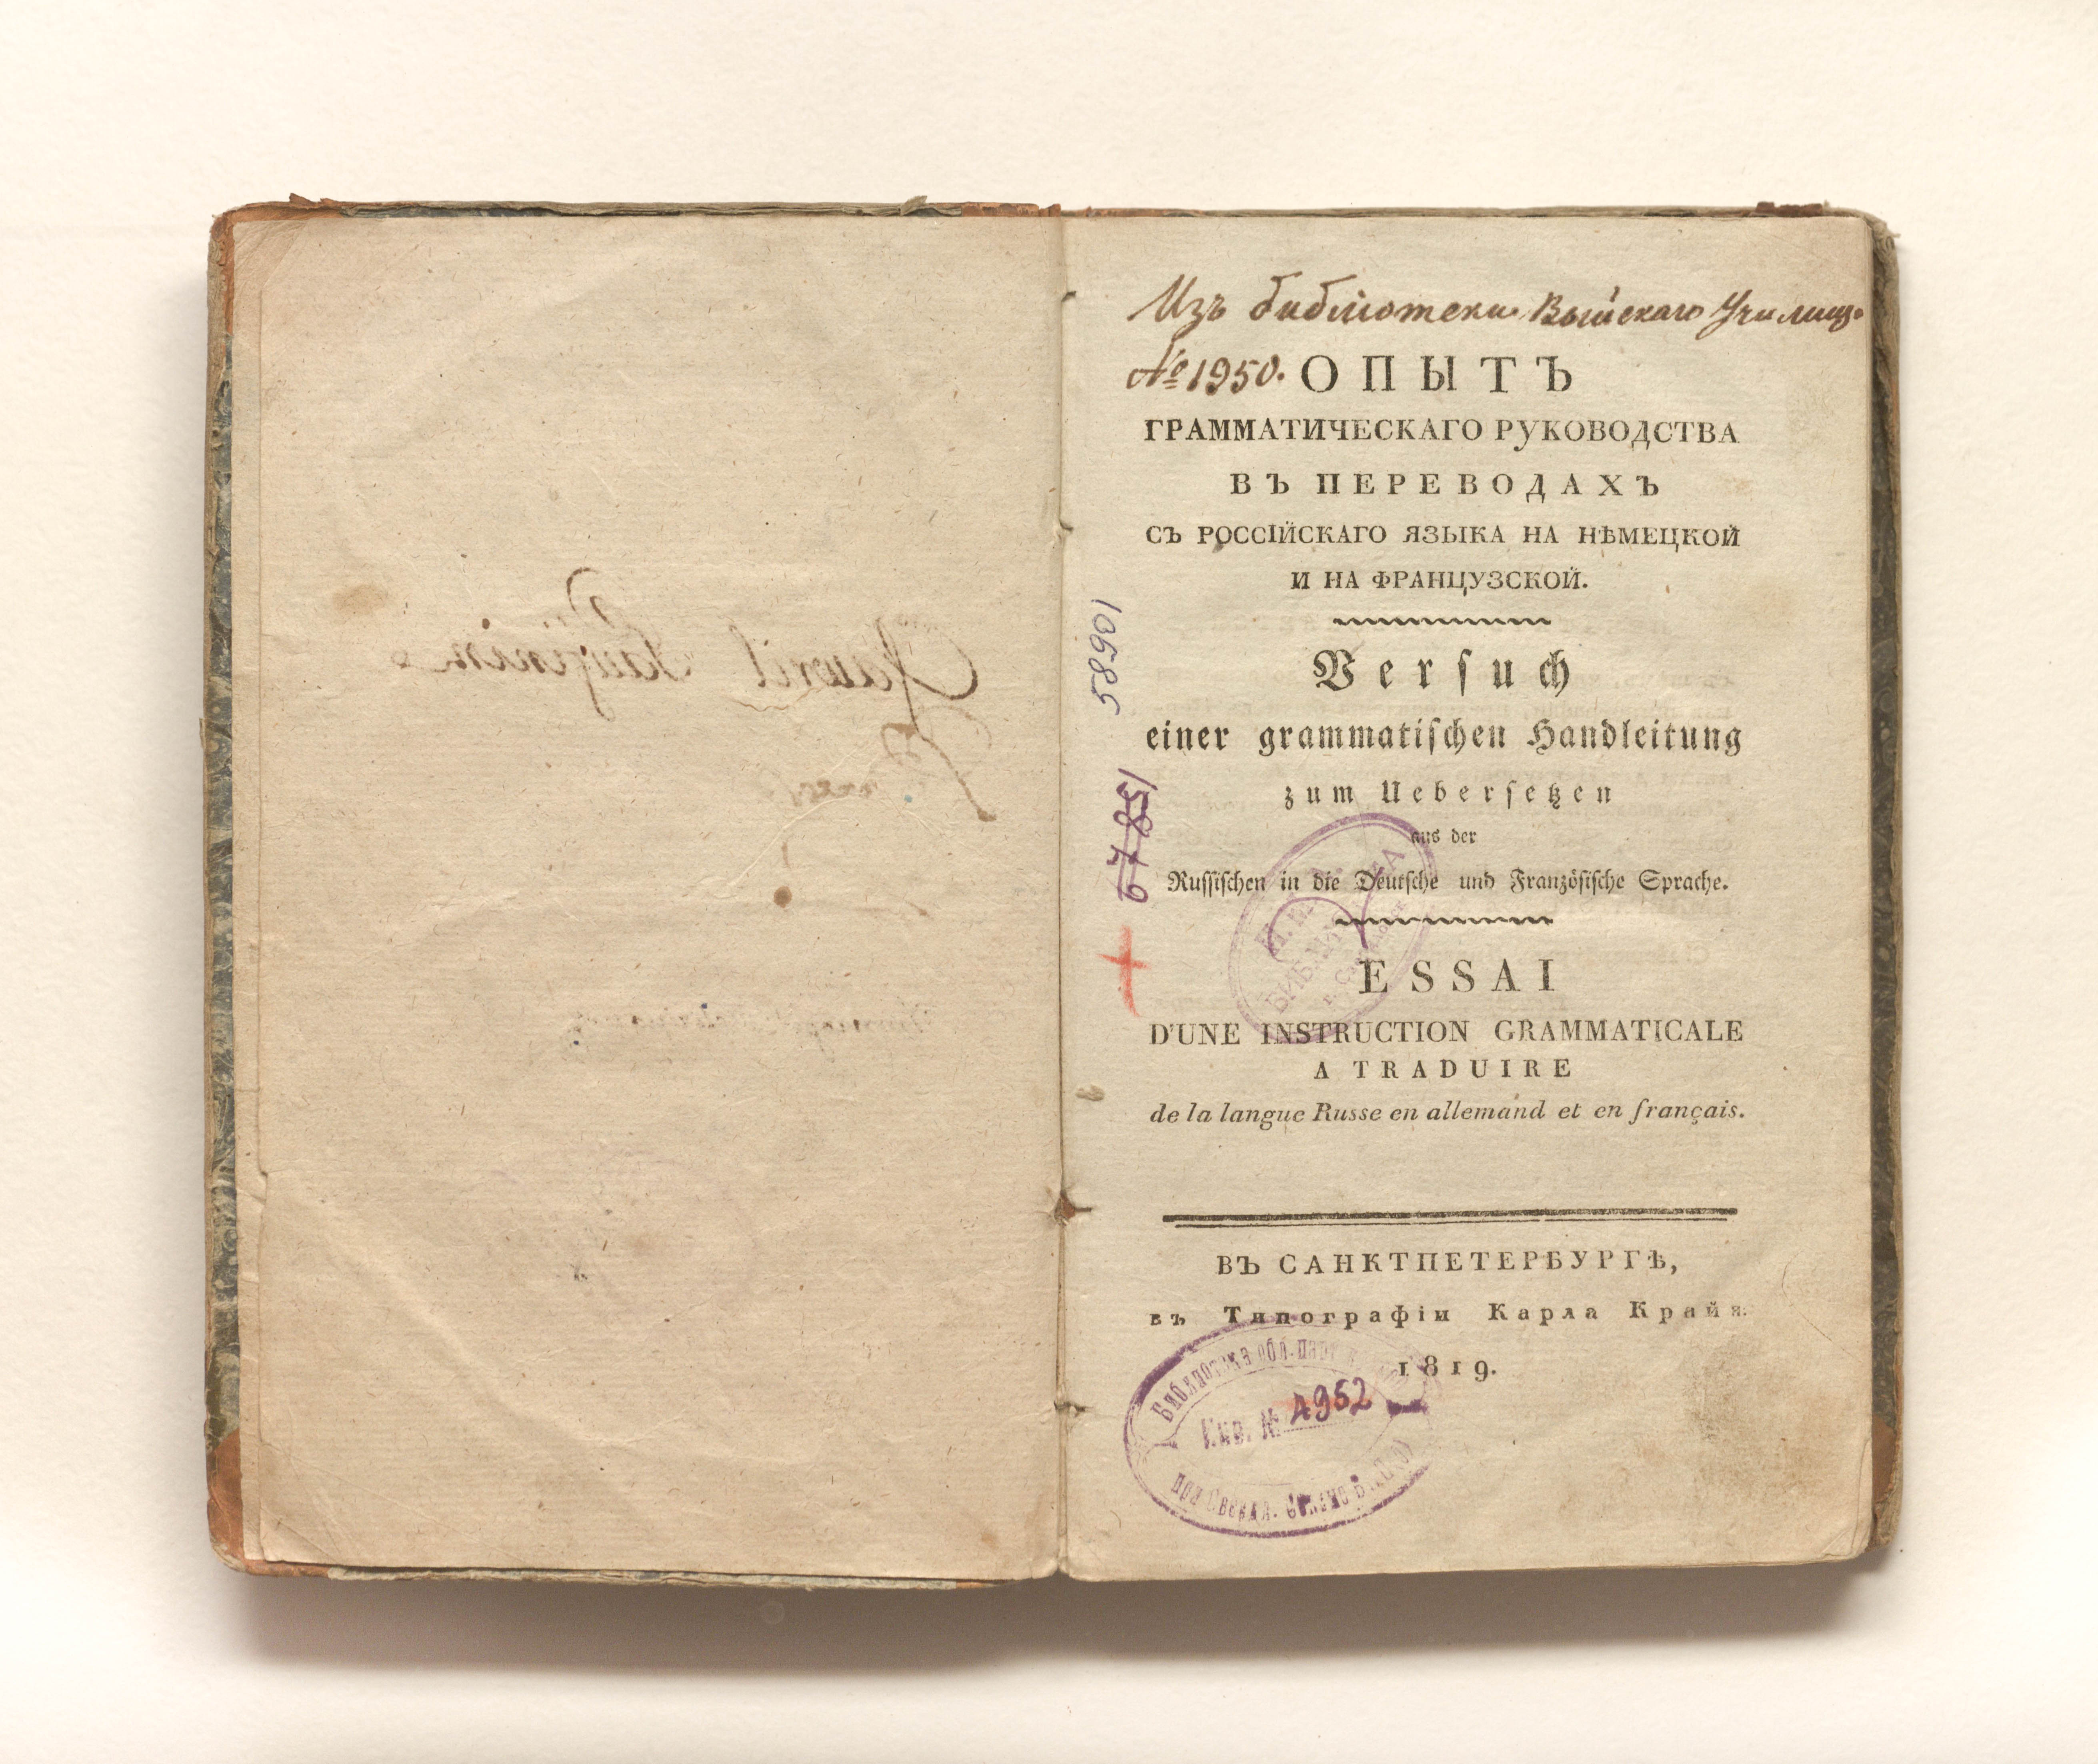 Изъ библіотеки Выйскаго Училищ.
№ 1950.
ОПЫТЪ
ГРАММАТИЧЕСКАГО РУКОВОДСТВА
ВЪ ПЕРЕВОДАХЪ
СЪ РОССІЙСКАГО ЯЗЫКА НА НѢМЕЦКОЙ
И НА ФРАНЦУЗСКОЙ.
Versuch
einer grammatischen Handleitung
zum Uebersetzen
aus der
Russischen in die Deutsche und Französische Sprache.
ESSAI
D'UNE INSTRUCTION GRAMMATICALE
A TRADUIRE
de la langue Russe en allemand et en français.
ВЪ САНКТПЕТЕРБУРГѢ,
въ Типографіи Карла Крайя.
1819.
Библиотека обл.
Инв. № 4952
при
БИБЛИОТЕКА